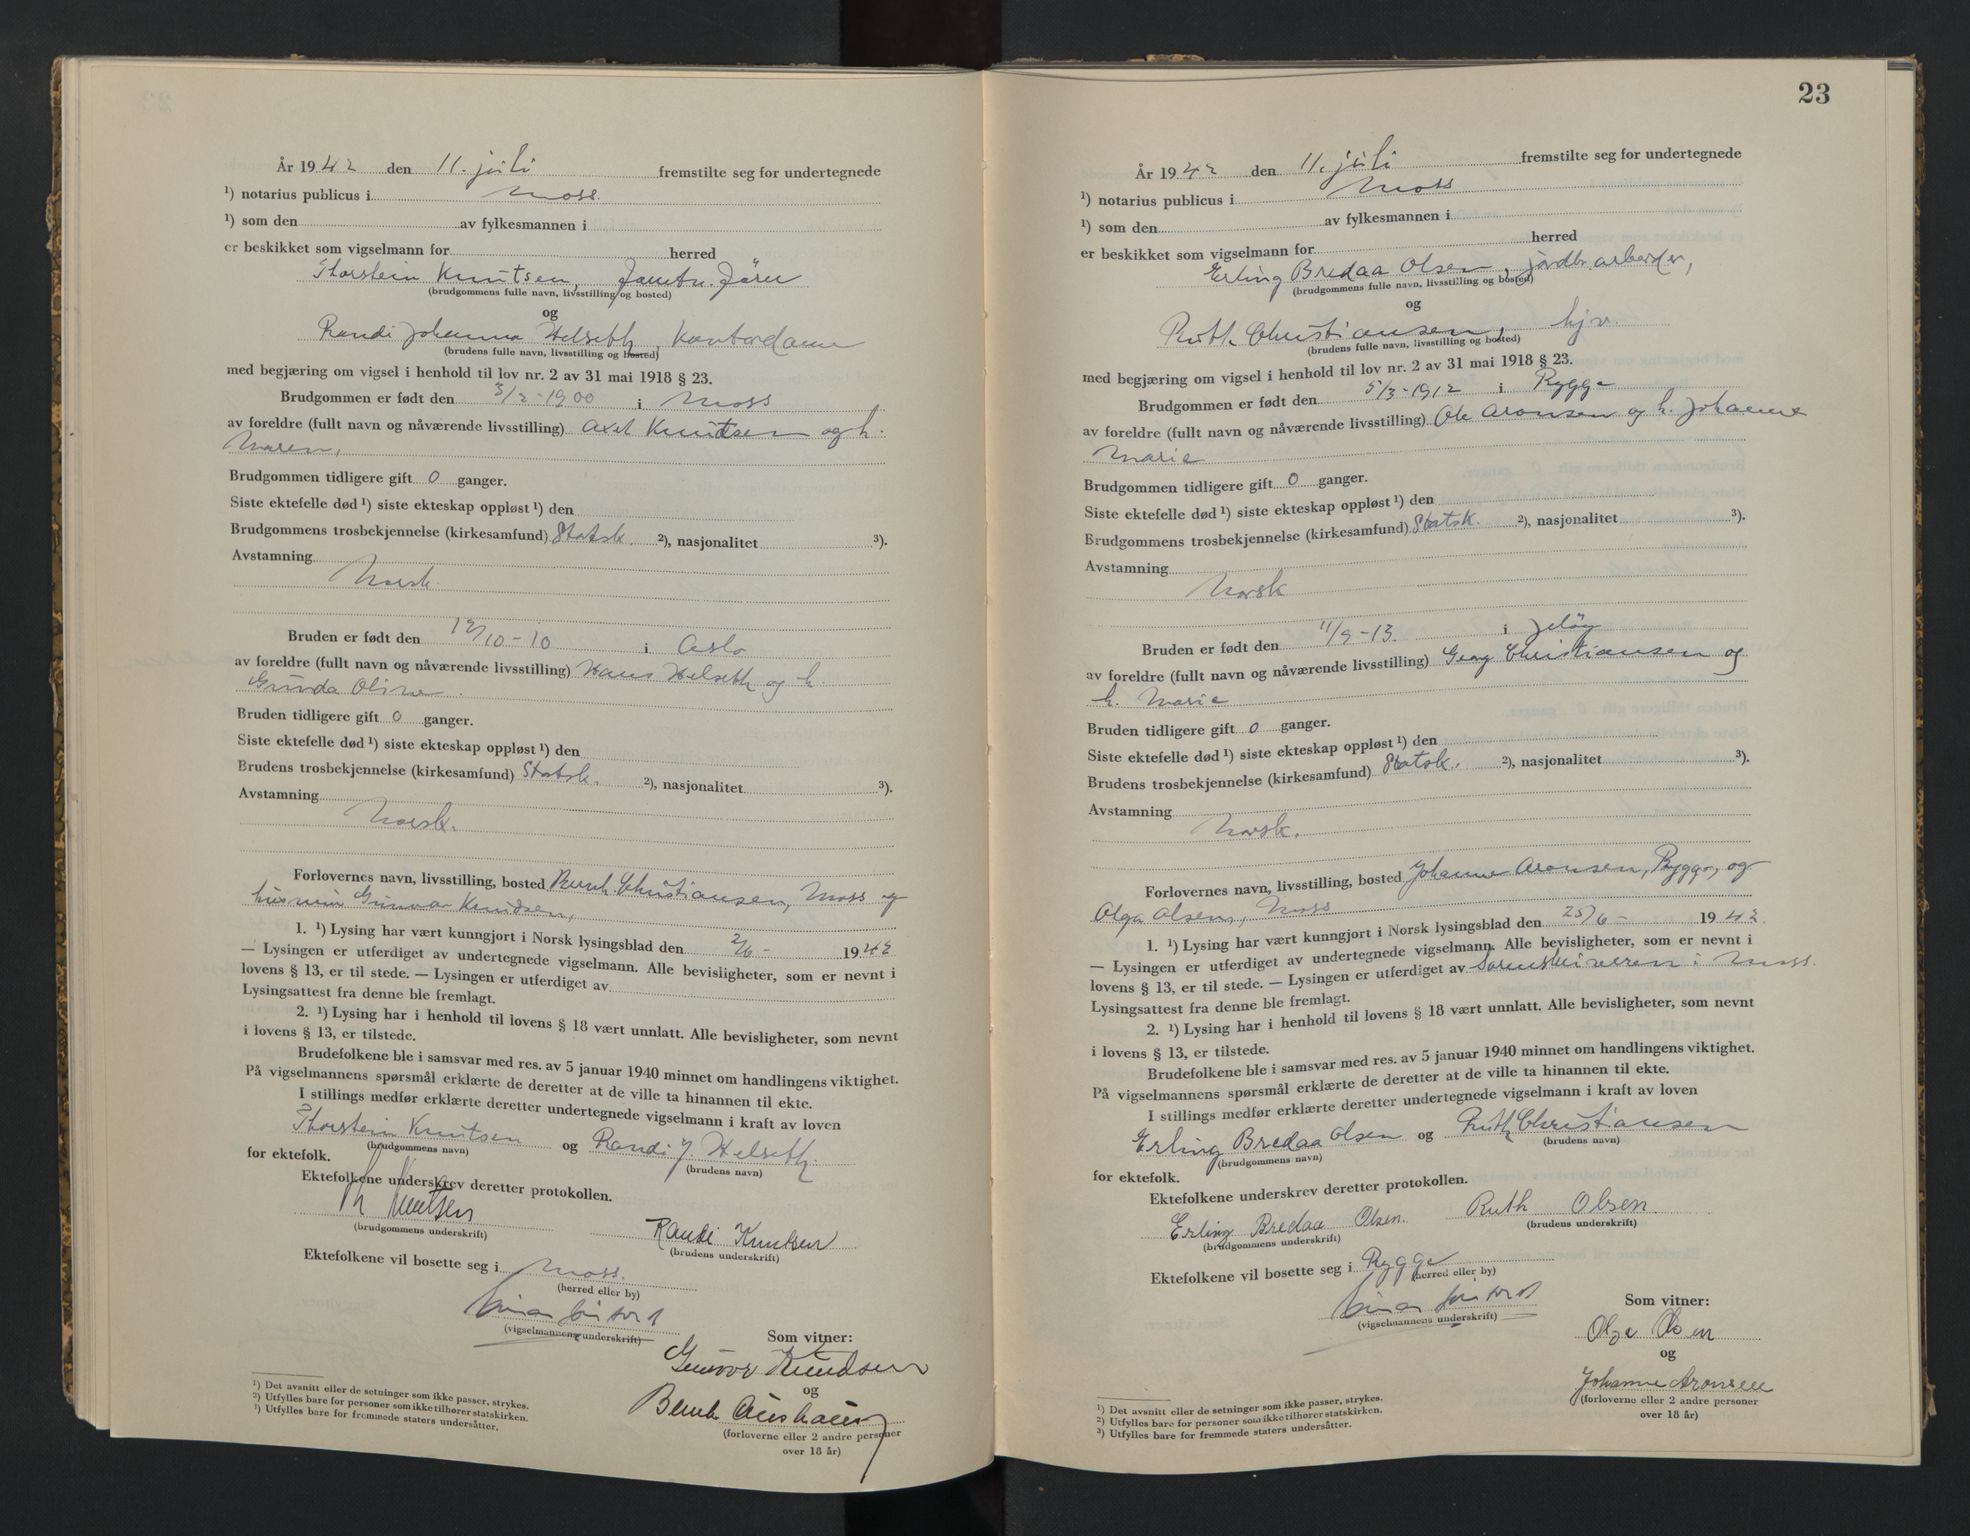 År 1942 den 11. juli fremstilte seg for undertegnede
¹) notarius publicus i Moss.
¹) som den av fylkesmannen i
er beskikket som vigselmann for herred
Thorstein Knutsen,
(brudgommens fulle navn, livsstilling og bosted)
og
Randi Johanna Helseth, Kontordame
(brudens fulle navn, livsstilling og bosted)
med begjæring om vigsel i henhold til lov nr. 2 av 31 mai 1918 § 23.
Brudgommen er født den 3/2-1900 i Moss
av foreldre (fullt navn og nåværende livsstilling) Axel Knutsen og h.
Maren,
Brudgommen tidligere gift 0 ganger.
Siste ektefelle død ¹) siste ekteskap oppløst ¹) den
Brudgommens trosbekjennelse (kirkesamfund) Statsk. ²), nasjonalitet ³).
Avstamning
Norsk.
Bruden er født den 12/10-10 i Oslo
av foreldre (fullt navn og nåværende livsstilling) Hans Helseth og h.
Gunda Oline.
Bruden tidligere gift 0 ganger.
Siste ektefelle død ¹) siste ekteskap oppløst ¹) den
Brudens trosbekjennelse (kirkesamfund) Statsk. ²), nasjonalitet ³).
Avstamning
Norsk.
Forlovernes navn, livsstilling, bosted Bernh. Christiansen, Moss og
Gunvor Knudsen,
1. ¹) Lysing har vært kunngjort i Norsk lysingsblad den 2/6- 1942
— Lysingen er utferdiget av undertegnede vigselmann. Alle bevisligheter, som er nevnt i
lovens § 13, er til stede. — Lysingen er utferdiget av
Lysingsattest fra denne ble fremlagt.
2. ¹) Lysing har i henhold til lovens § 18 vært unnlatt. Alle bevisligheter, som nevnt
i lovens § 13, er tilstede.
Brudefolkene ble i samsvar med res. av 5 januar 1940 minnet om handlingens viktighet.
På vigselmannens spørsmål erklærte de deretter at de ville ta hinannen til ekte.
I stillings medfør erklærte deretter undertegnede vigselmann i kraft av loven
Thorstein Knutsen og Randi J. Helseth.
(brudgommens navn) (brudens navn)
for ektefolk.
Ektefolkene underskrev deretter protokollen.
Th Knutsen
(brudgommens underskrift)
Randi Knutsen
(brudens underskrift)
Ektefolkene vil bosette seg i Moss.
(herred eller by)
(vigselmannens underskrift)
Som vitner:
Gunvor Knudsen
og
Bernh
(forloverne eller 2 andre personer
over 18 år)
¹) Det avsnitt eller de setninger som ikke passer, strykes.
²) Utfylles bare for personer som ikke tilhører statskirken.
³) Utfylles bare for fremmede staters undersåtter.
23
År 1942 den 11. juli fremstilte seg for undertegnede
¹) notarius publicus i Moss
¹) som den av fylkesmannen i
er beskikket som vigselmann for herred
Erling Bredaa Olsen, jordbr.arbeider,
(brudgommens fulle navn, livsstilling og bosted)
og
Ruth Christiansen, hjv.
(brudens fulle navn, livsstilling og bosted)
med begjæring om vigsel i henhold til lov nr. 2 av 31 mai 1918 § 23.
Brudgommen er født den 5/3-1912 i Rygge
av foreldre (fullt navn og nåværende livsstilling) Ole Aronsen og h. Johanne
Marie
Brudgommen tidligere gift 0 ganger.
Siste ektefelle død ¹) siste ekteskap oppløst ¹) den
Brudgommens trosbekjennelse (kirkesamfund) Statsk. ²), nasjonalitet ³).
Avstamning
Norsk
Bruden er født den 11/9-13 i Jeløy
av foreldre (fullt navn og nåværende livsstilling) Georg Christiansen og
h. Marie
Bruden tidligere gift 0 ganger.
Siste ektefelle død ¹) siste ekteskap oppløst ¹) den
Brudens trosbekjennelse (kirkesamfund) Statsk. ²), nasjonalitet ³).
Avstamning
Norsk.
Forlovernes navn, livsstilling, bosted Johanne Aronsen, Rygge, og
Olga Olsen, Moss
1. ¹) Lysing har vært kunngjort i Norsk lysingsblad den 25/6- 1942
— Lysingen er utferdiget av undertegnede vigselmann. Alle bevisligheter, som er nevnt i
lovens § 13, er til stede. — Lysingen er utferdiget av Sorenskriveren i Moss.
Lysingsattest fra denne ble fremlagt.
2. ¹) Lysing har i henhold til lovens § 18 vært unnlatt. Alle bevisligheter, som nevnt
i lovens § 13, er tilstede.
Brudefolkene ble i samsvar med res. av 5 januar 1940 minnet om handlingens viktighet.
På vigselmannens spørsmål erklærte de deretter at de ville ta hinannen til ekte.
I stillings medfør erklærte deretter undertegnede vigselmann i kraft av loven
Erling Bredaa Olsen og Ruth Christiansen
(brudgommens navn) (brudens navn)
for ektefolk.
Ektefolkene underskrev deretter protokollen.
Erling Bredaa Olsen. Ruth Olsen
(brudgommens underskrift) (brudens underskrift)
Ektefolkene vil bosette seg i Rygge
(herred eller by)
(vigselmannens underskrift)
Som vitner:
Olga Olsen
og
Johanne Aronsen
(forloverne eller 2 andre personer
over 18 år)
¹) Det avsnitt eller de setninger som ikke passer, strykes.
²) Utfylles bare for personer som ikke tilhører statskirken.
³) Utfylles bare for fremmede staters undersåtter.